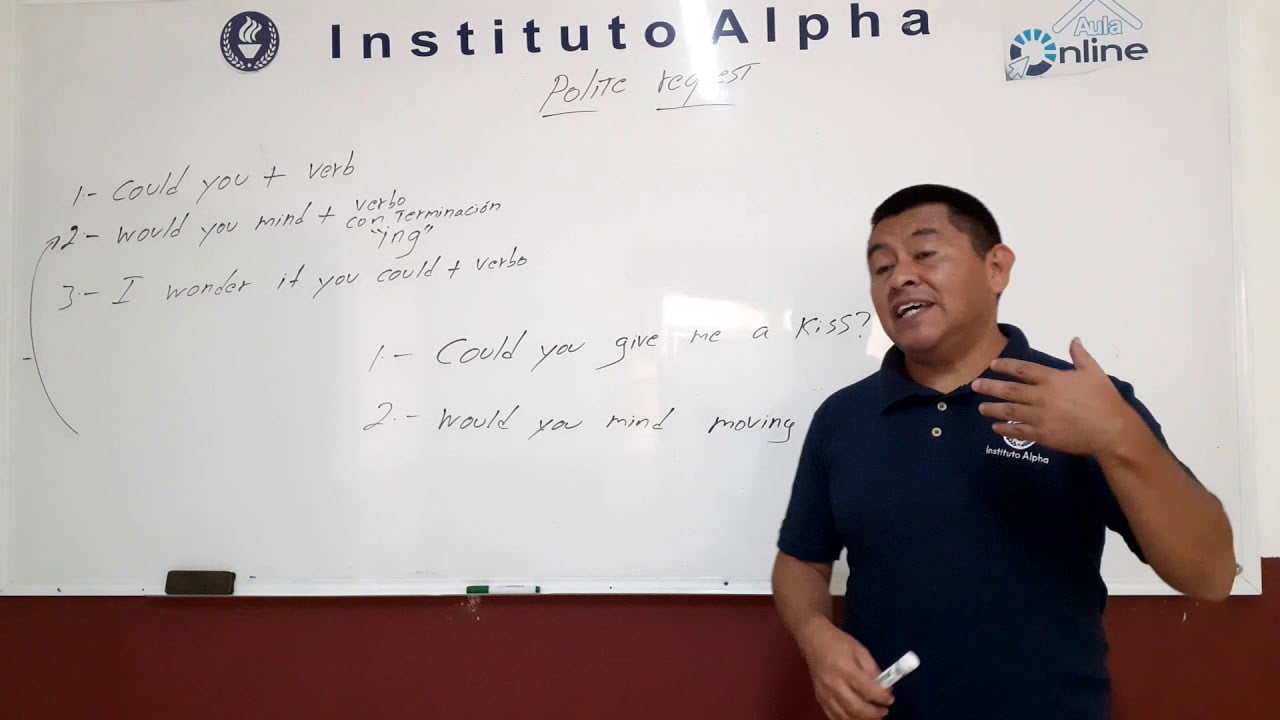 Instituto Alpha
Aula
Online
Polite request
1.- Could you + verb
2.- Would you mind + verbo
con terminación
"ing"
3.- I wonder if you could + verbo
1.- Could you give me a kiss?
2.- Would you mind moving
Instituto Alpha